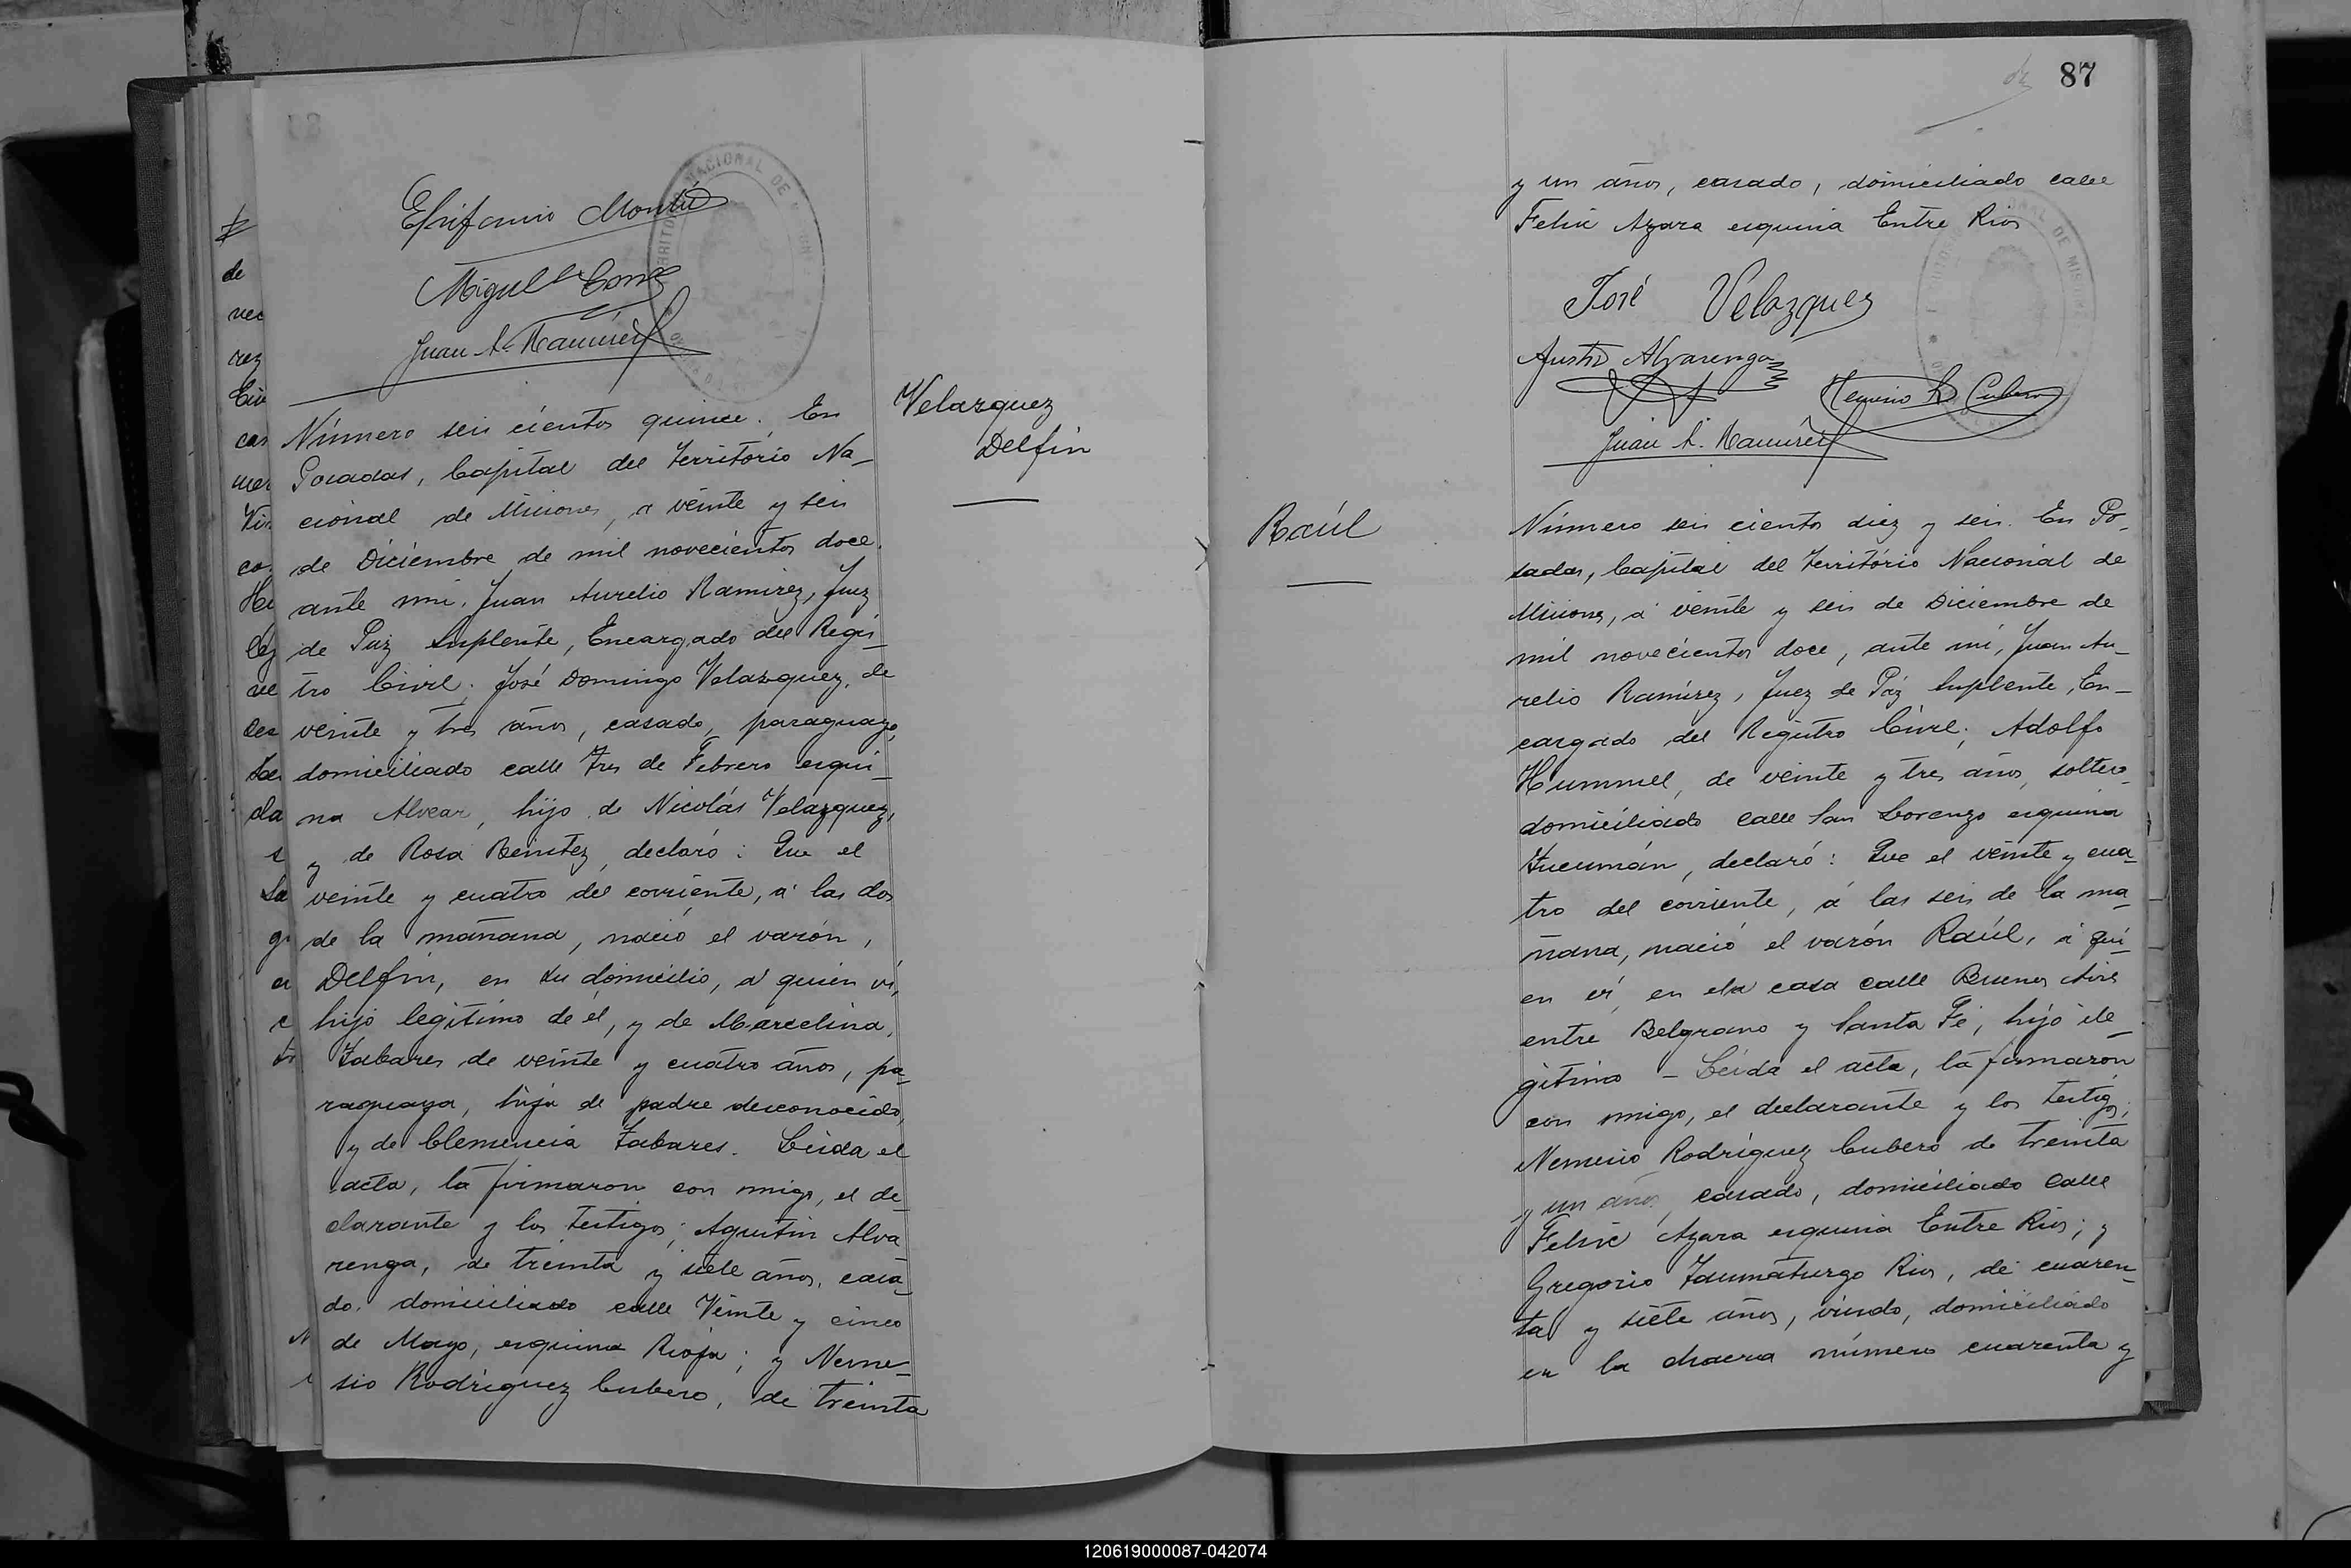 Epifanio
Miguel
Juan A. Ramírez
TERRITORIO NACIONAL DE
Velazquez
Delfin
Número seis cientos quince. En
Posadas, Capital del Territorio Na_
cional de Misiones, a veinte y seis
de Diciembre de mil novecientos doce,
ante mi, Juan Aurelio Ramirez, Juez
de Paz Suplente, Encargado del Regis_
tro Civil; José Domingo Velazquez, de
veinte y tres años, casado, paraguayo,
domiciliado calle Tres de Febrero esqui_
na Alvear, hijo de Nicolás Velazquez,
y de Rosa Benitez, declaró: Que el
veinte y cuatro del corriente, a las dos
de la mañana, nació el varón,
Delfin, en su domicilio, a quien vi,
hijo legitimo de él, y de Marcelina,
Tabares de veinte y cuatro años, pa_
raguaya, hija de padre desconocido,
y de Clemencia Tabares. Leida el
acta, la firmaron con migo, el de_
clarante y los testigos; Agustin Alva_
renga, de treinta y siete años, casa_
do, domiciliado calle Veinte y cinco
de Mayo, esquina Rioja; y Neme_
sio Rodriguez Cubero, de treinta
87
y un años, casado, domiciliado calle
Felix Azara esquina Entre Rios
José Velazquez
Agustin Alvarenga
Nemesio R. Cubero
Juan A. Ramírez
NACIONAL DE MISIONES
Raúl
Número seis cientos diez y seis. En Po_
sadas, Capital del Territorio Nacional de
Misiones, á veinte y seis de Diciembre de
mil novecientos doce, ante mi, Juan Au_
relio Ramirez, Juez de Paz Suplente, En_
cargado del Registro Civil; Adolfo
Hummel, de veinte y tres años, soltero,
domiciliado calle San Lorenzo esquina
Tucumán, declaró: Que el veinte y cua_
tro del corriente, á las seis de la ma_
ñana, nació el varón Raúl, á qui_
en vi, en la casa calle Buenos Aires
entre Belgrano y Santa Fé, hijo ile_
gitimo - Leida el acta, la firmaron
con migo, el declarante y los testigos;
Nemesio Rodriguez Cubero de treinta
y un años, casado, domiciliado calle
Felix Azara esquina Entre Rios; y
Gregorio Taumaturgo Rios, de cuaren_
ta y siete años, viudo, domiciliado
en la chacra número cuarenta y
120619000087-042074